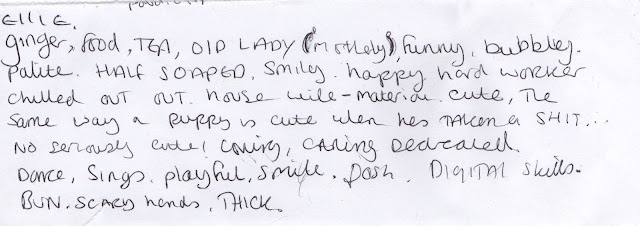 ELLIE.
ginger, food, TEA, OLD LADY (motherly), funny, bubbley.
Patite. HALF SOAPED. Smiley. happy hard worker
chilled OUT OUT. house wife-material. cute, THE
same way a puppy is cute when hes TAKEN a SHIT...
NO seriously cute! loving, CARING Dedicated.
Dance, Sings. playful, smile. posh. DIGITAL skills.
BUN. SCARY hands. THICK.